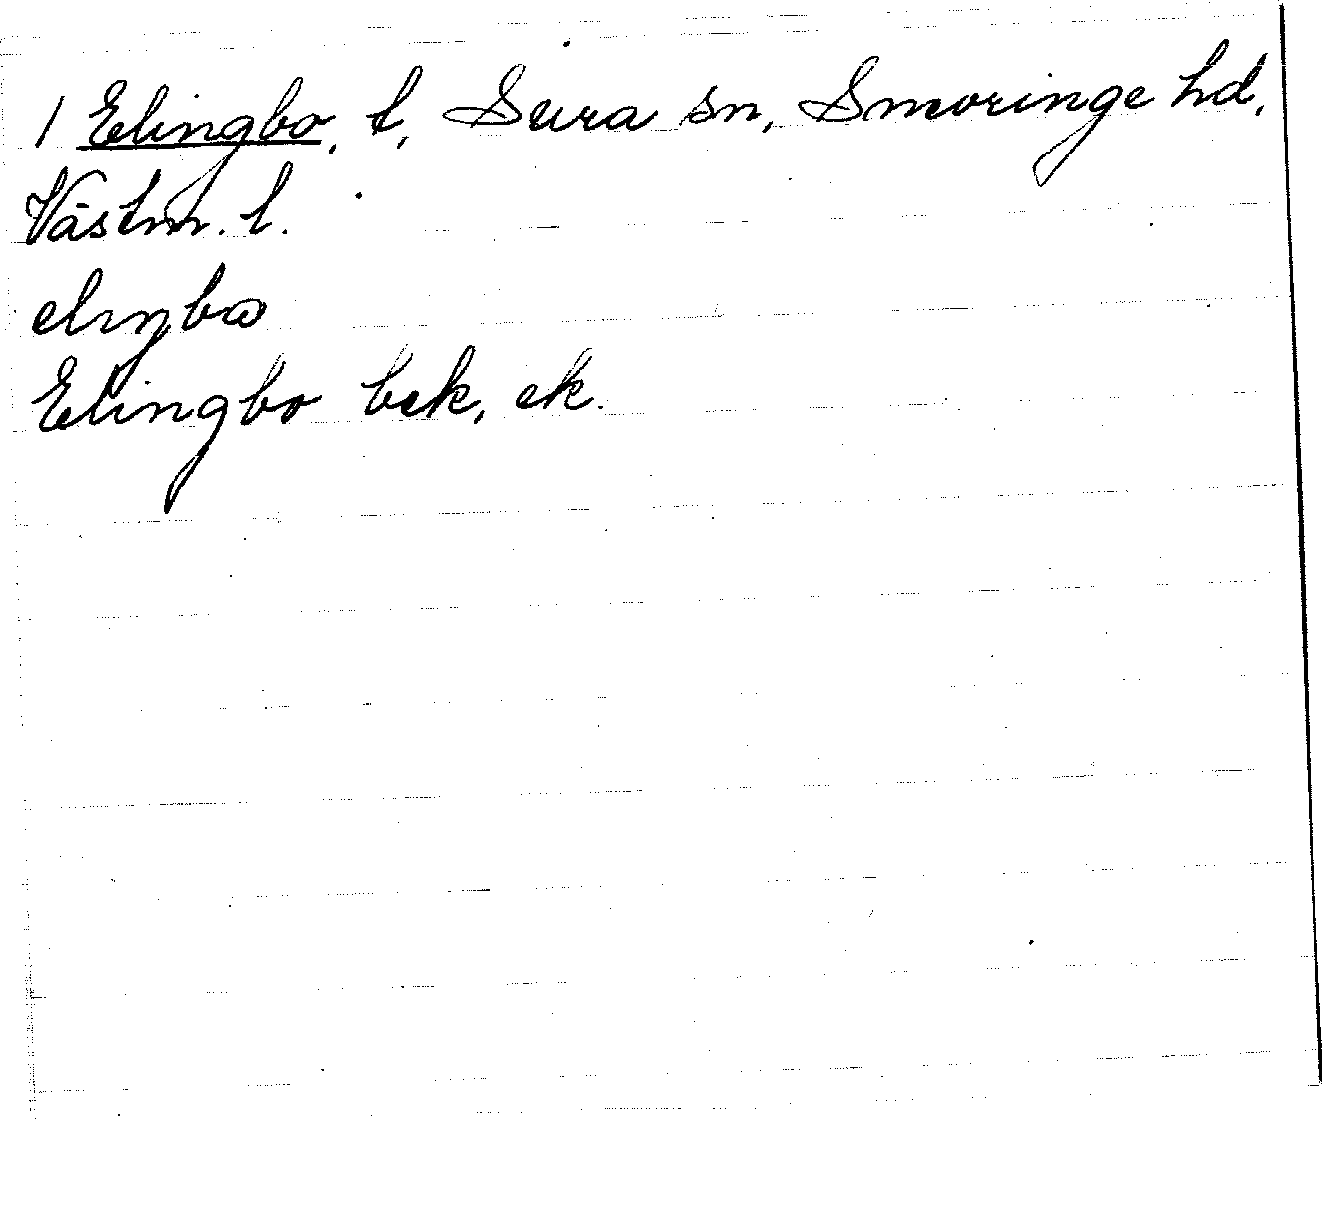 1 Elingbo, t, Sura sn, Snevringe hd,
Västm. l.
elıŋbω
Elingbo bek, ek.